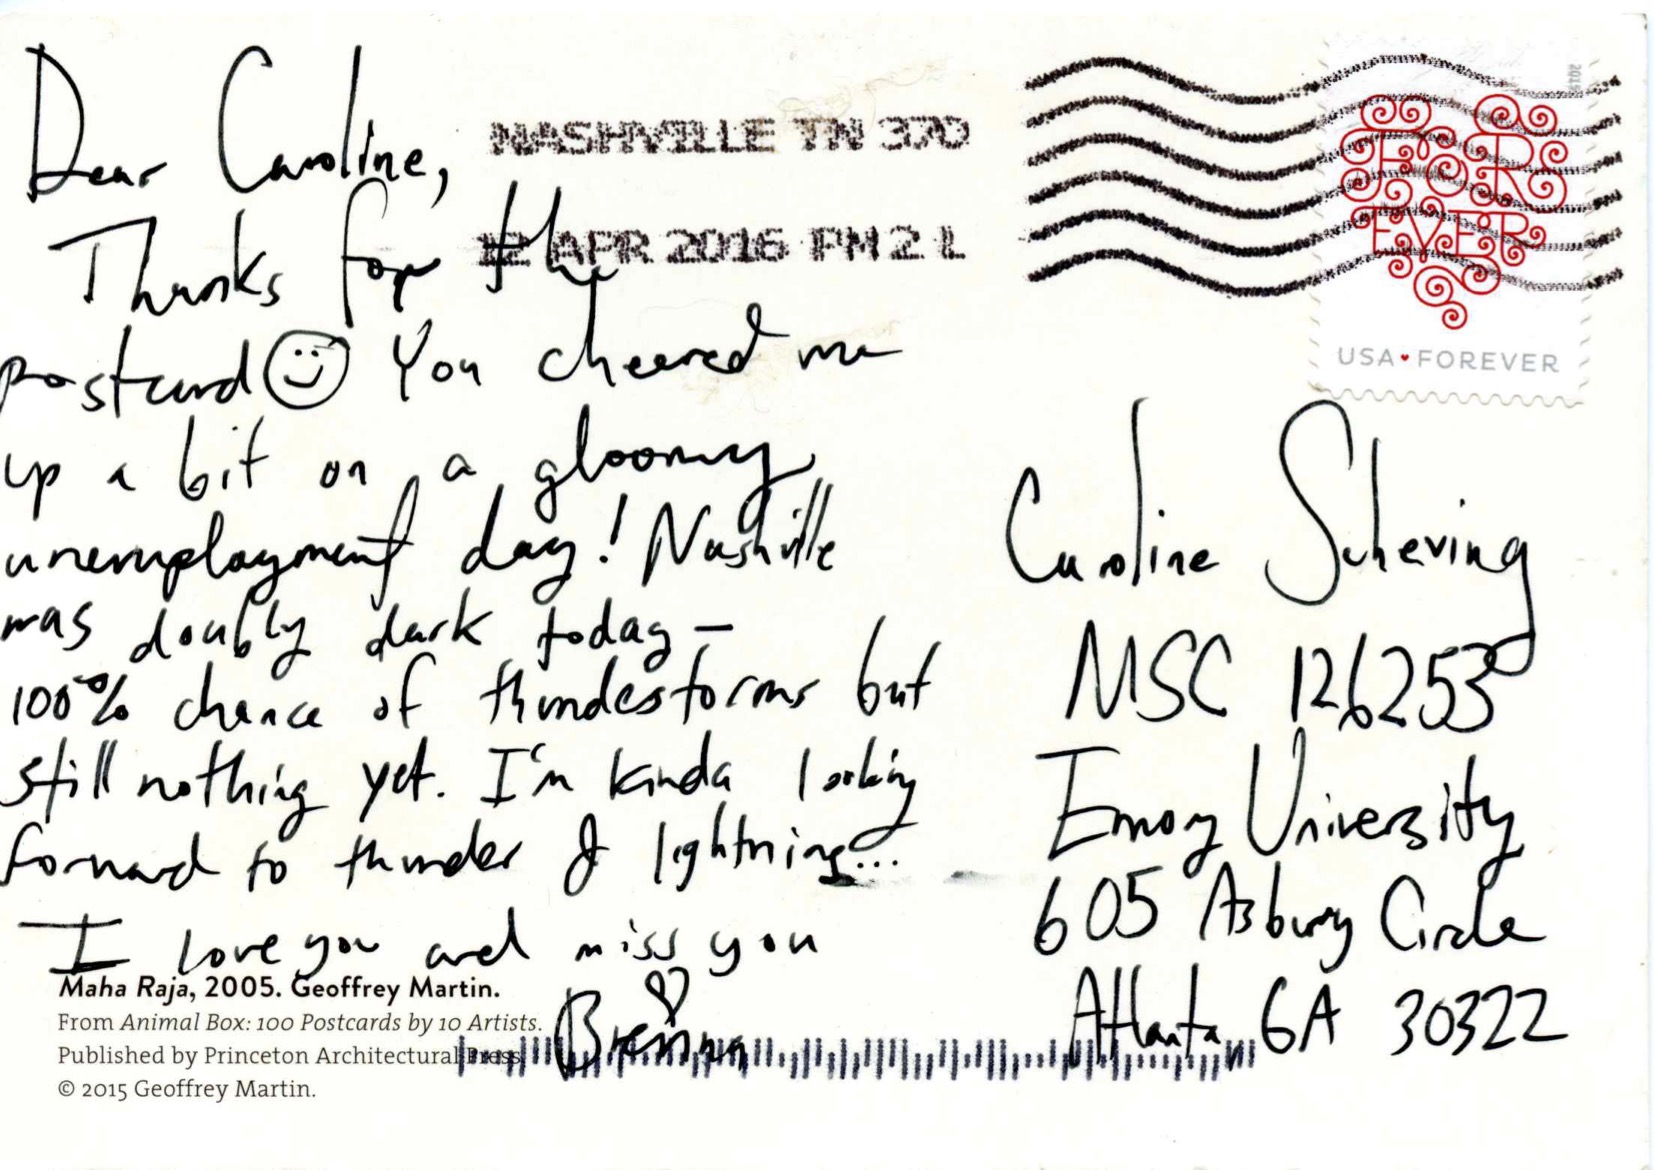 Dear Caroline,
Thanks for the
postcard You cheered me
up a bit on a gloomy
unemployment day! Nashville
was doubly dark today –
100% chance of thunderstorms but
still nothing yet. I'm kinda looking
forward to thunder & lightning...
I love you and miss you
♡
Brenna
Maha Raja, 2005. Geoffrey Martin.
From Animal Box: 100 Postcards by 10 Artists.
Published by Princeton Architectural Press.
© 2015 Geoffrey Martin.
NASHVILLE TN 370
12 APR 2016 PM 2 L
FOR
EVER
USA FOREVER
Caroline Scheving
MSC 126253
Emory University
605 Asbury Circle
Atlanta, GA 30322